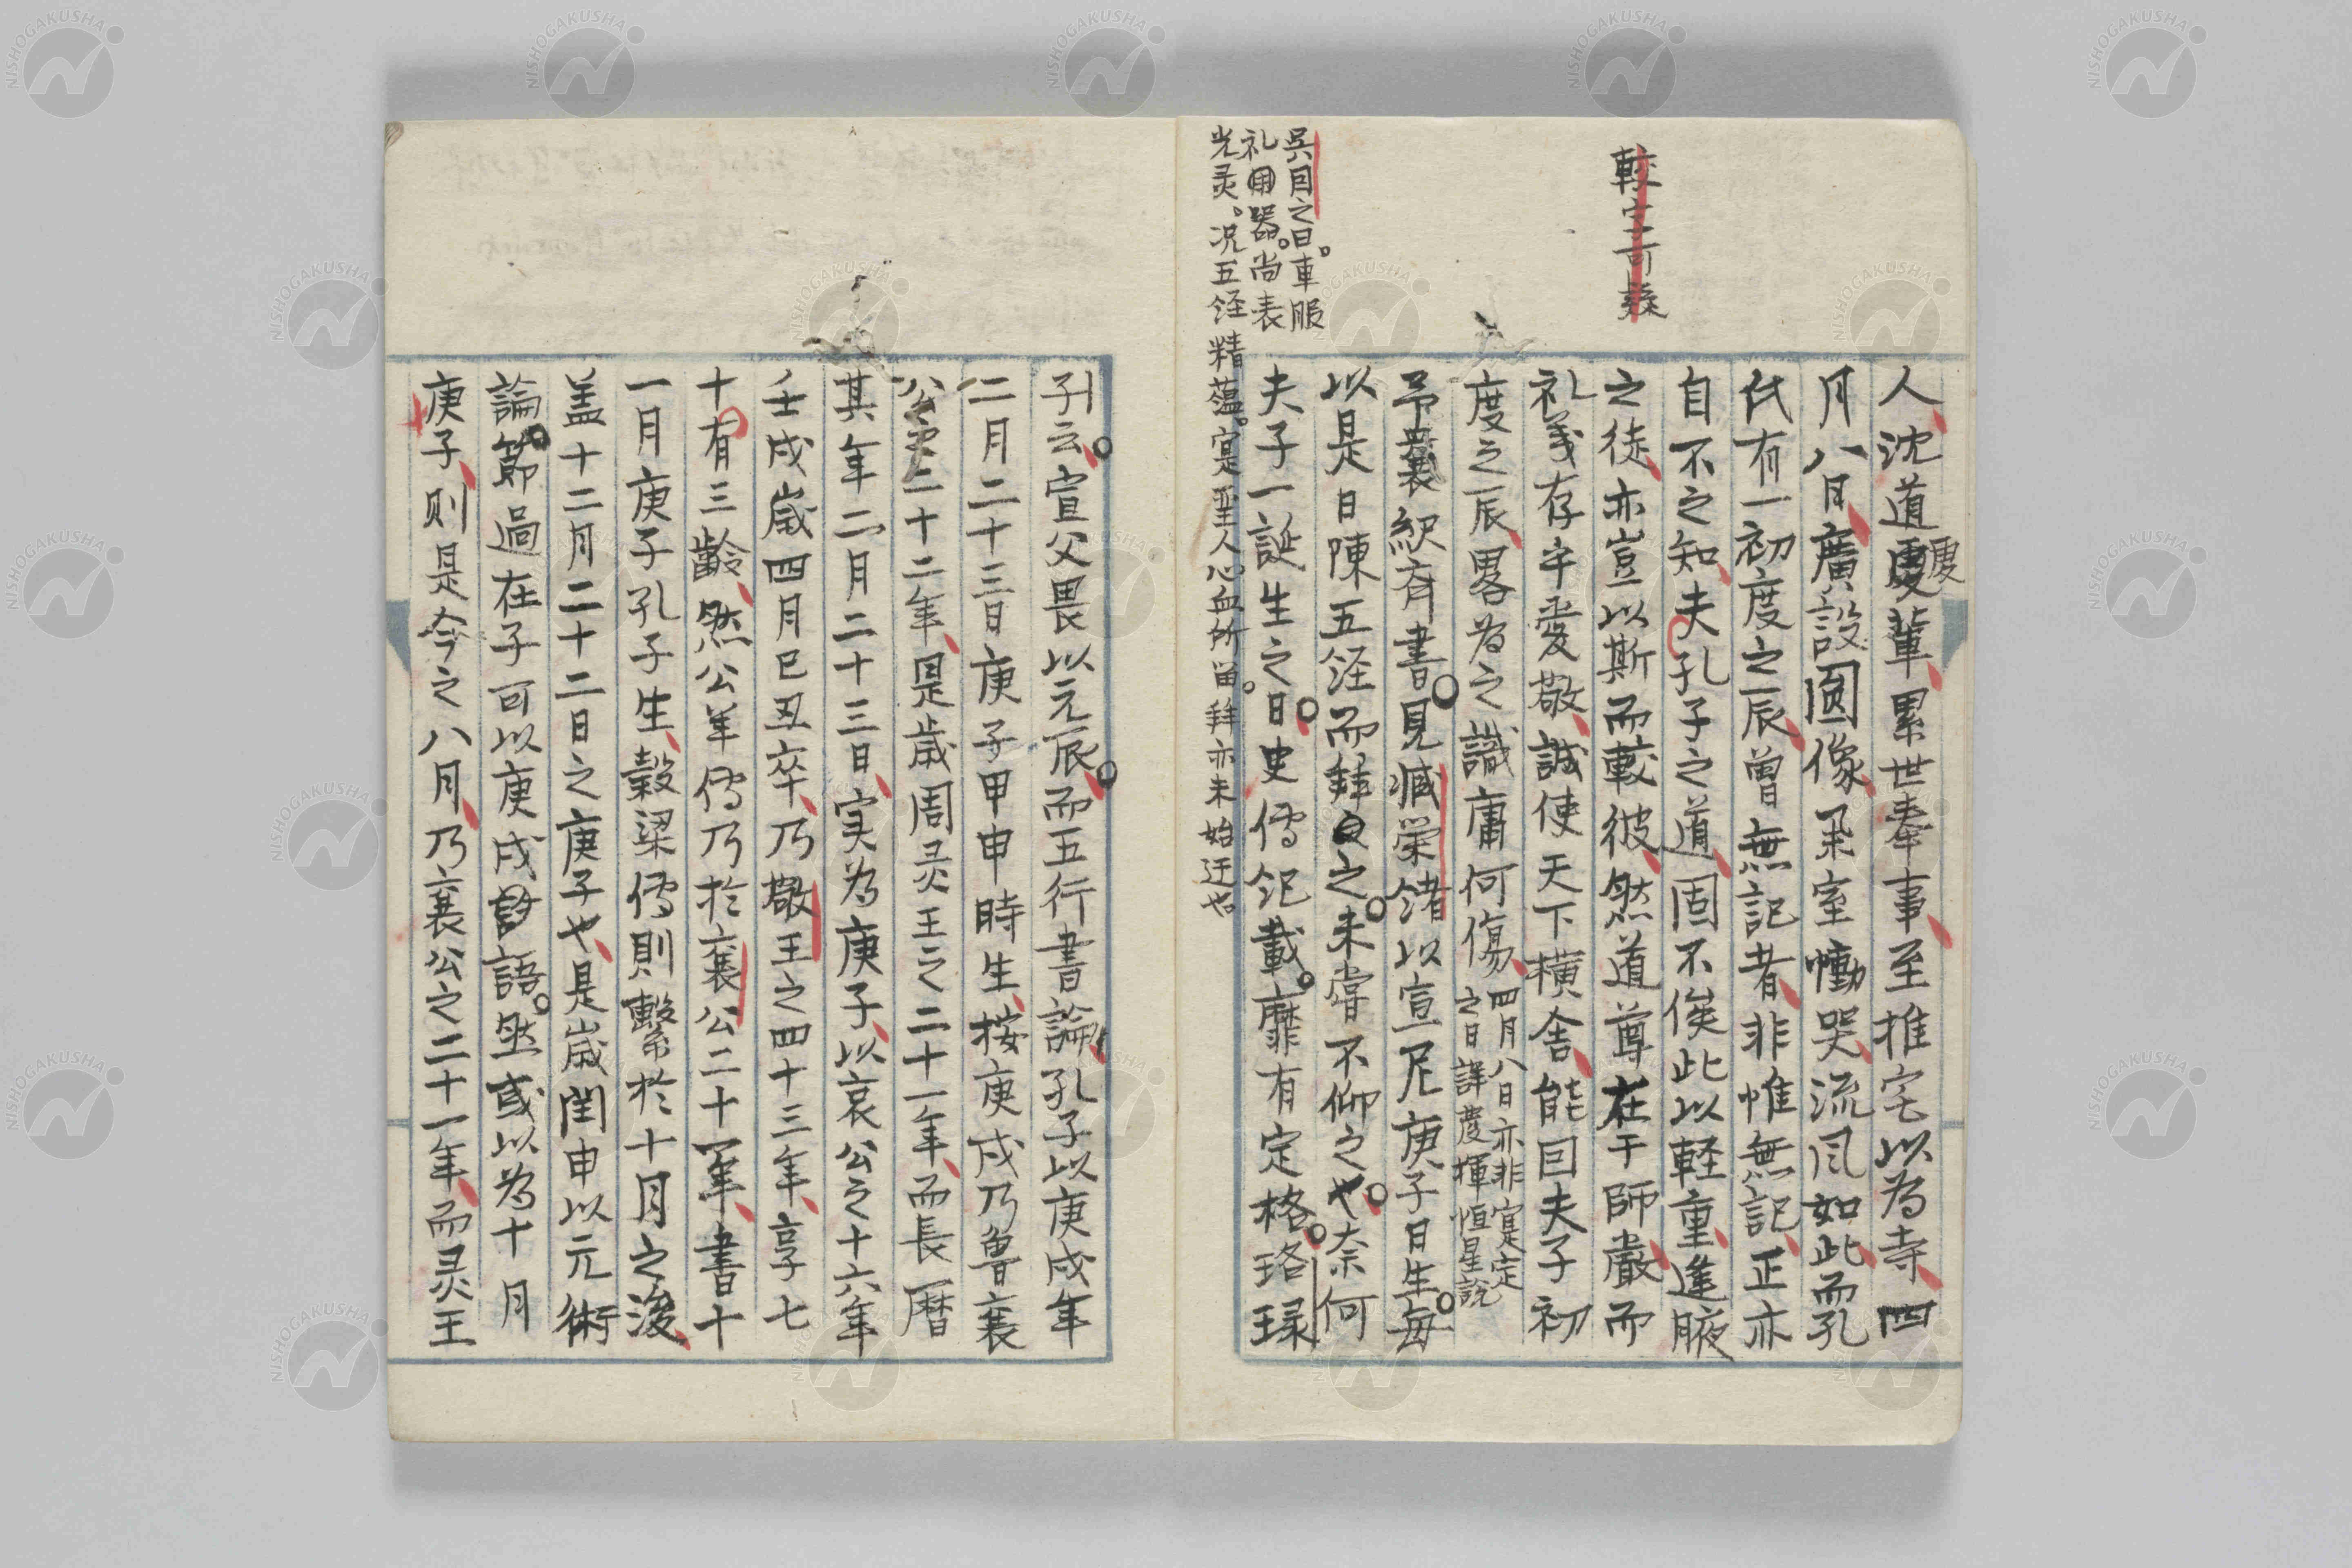 較字可疑
人沈道虔輩累世奉事至推宅以為寺四
虔
月八日廣設圓像罙室慟哭流風如此而孔
氏有一初度之辰曽無記者非惟無記正亦
自不之知夫孔子之道固不俟此以軽重逢腋
之徒亦豈以斯而較彼然道尊在于師嚴而
礼義存乎愛敬誠使天下横舎能回夫子初
度之辰畧為之識庸何傷
四月八日亦非寔定
之日詳慶揮恒星説
予曩䊽齐書見臧榮緒以宣尼庚子日生毎
以是日陳五経而拜之未嘗不仰之也奈何
夫子一誕生之日史儒紀載靡有定格珞琭
呉目之日車服
礼用器尚表
光灵况五経精蕴寔聖人心血所畄拜亦未始迂也
子云宣父畏以元辰而五行書論孔子以庚戌年
二月二十三日庚子甲申時生按庚戌乃魯襄
公二十二年是歳周灵王之二十一年而長暦
其年二月二十三日实為庚子以哀公之十六年
壬戌歳四月己丑卒乃敬王之四十三年享七
十有三齢然公羊儒乃於襄公二十一年書十
一月庚子孔子生穀梁儒則繫於十月之後
盖十二月二十二日之庚子也是歳閏申以元術
論節過在子可以庚戌語然或以為十月
庚子則是今之八月乃襄公之二十一年而灵王